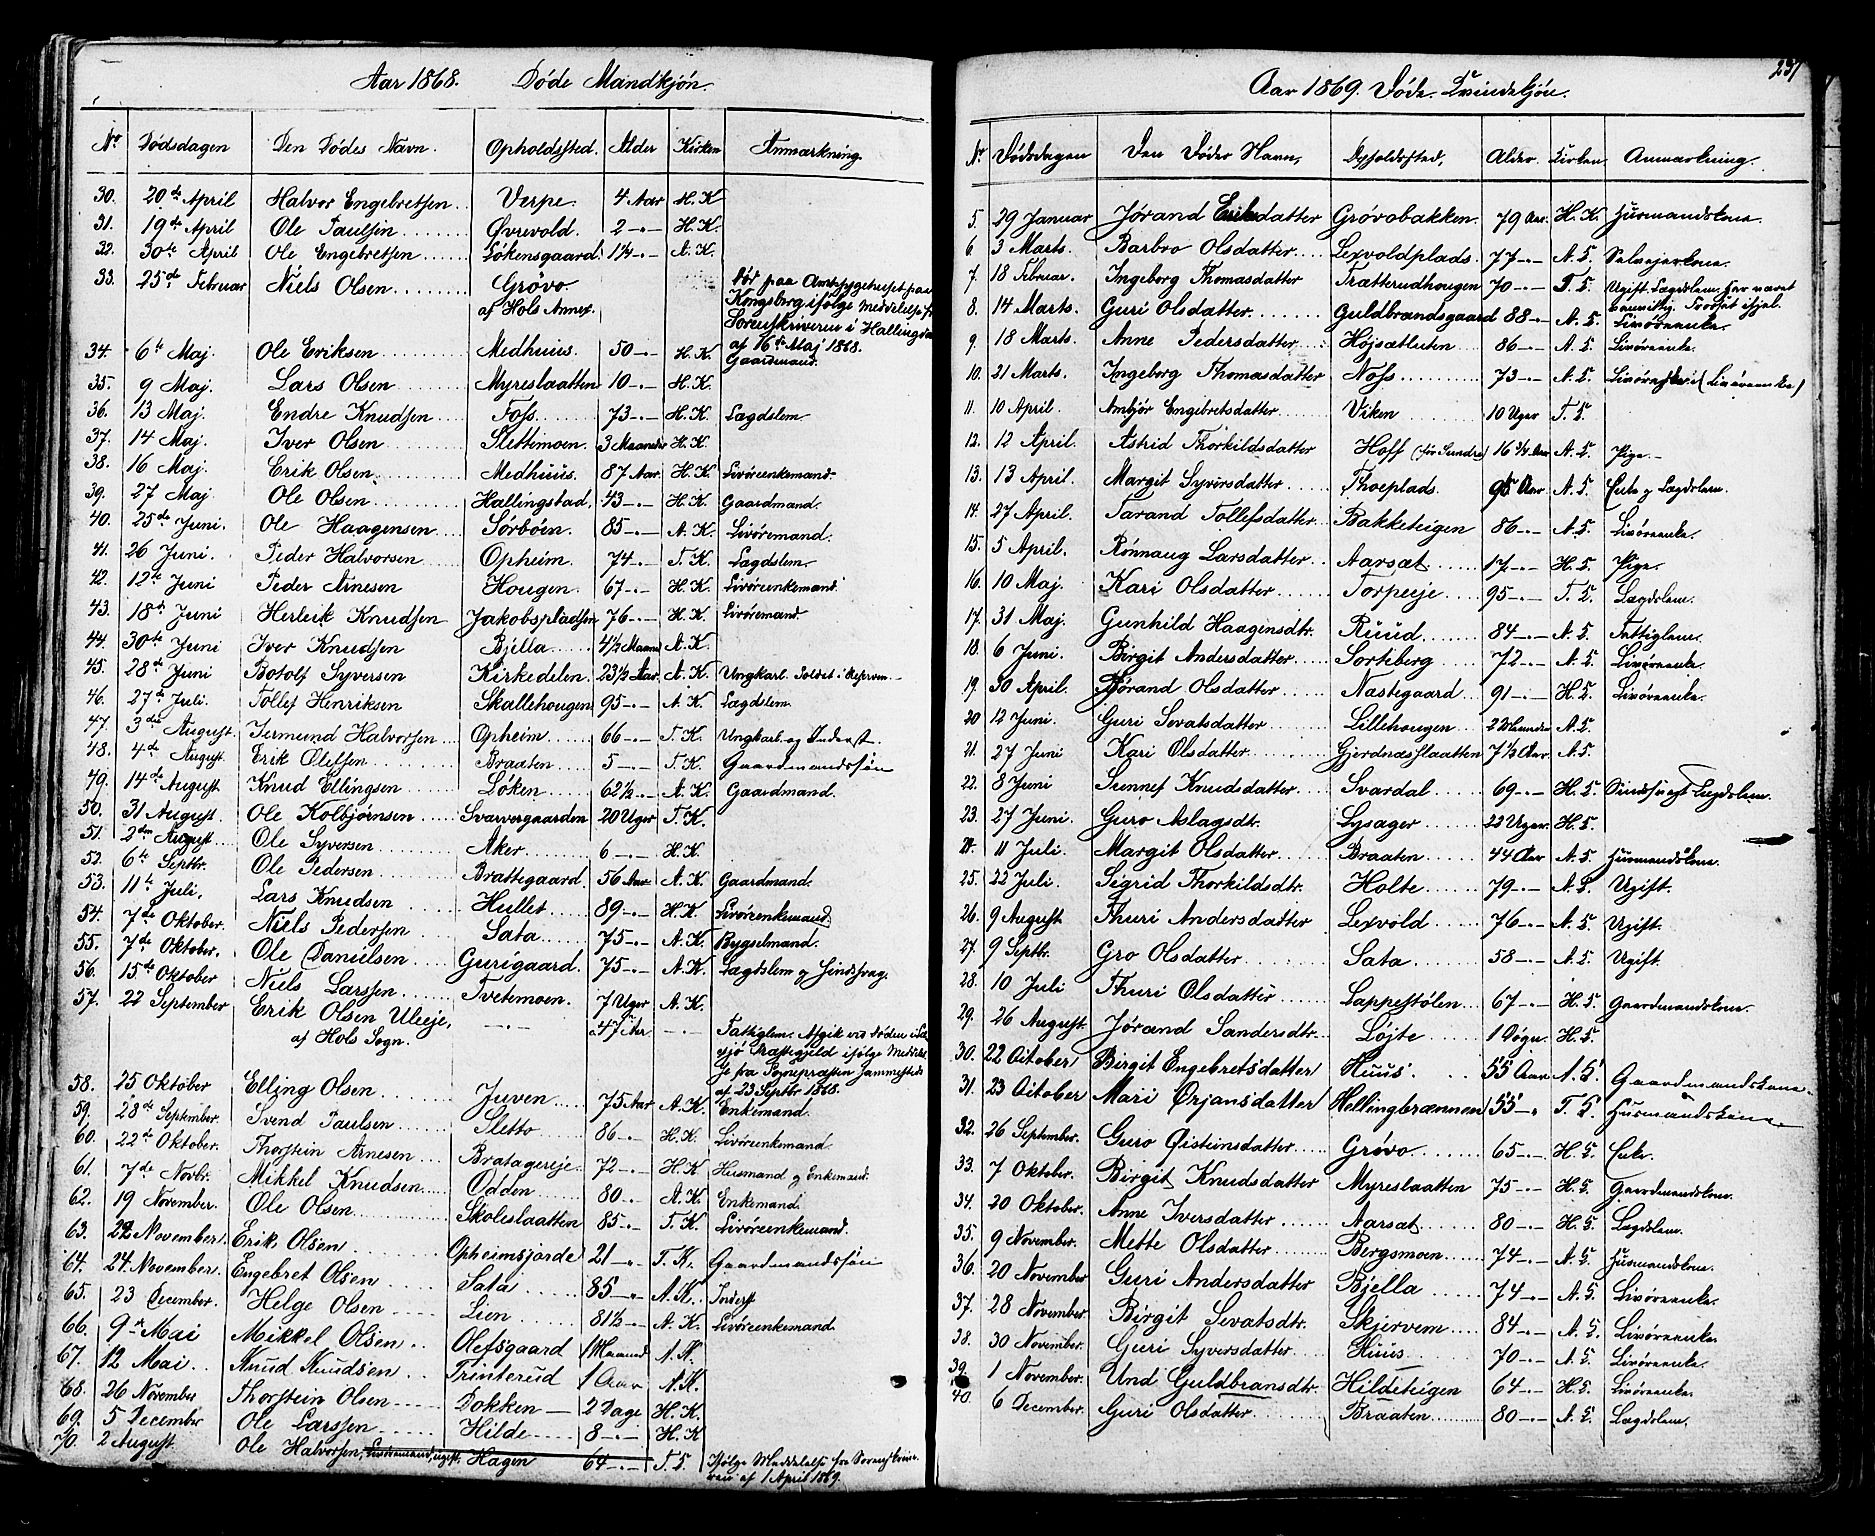 Aar 1868. Døde Mandkjøn.
No Dødsdagen Den Dødes Navn. Opholdsted. Alder Kirken Anmærkning.
30. 20de April Halvor Engebretsen Verpe. 4 Aar H. K
31. 19de April Ole Paulsen Øvrevold. 2 -"- H. K.
32. 30te April Ole Engebretsen Løkensgaard. 1¼ -"- A. K.
33. 25de Februar Niels Olsen Grøvo
af Hols Annex.
Død paa Amtssygehuset paa
Kongsberg ifølge Meddelelse fra
Sorenskriveren i Hallingdal
af 16de Maj 1868.
34. 6te Maj Ole Eriksen Medhuus. 50 -"- H. K. Gaardmand.
35. 9 Maj. Lars Olsen Myreslaatten 10 -"- H. K.
36. 13 Maj. Endre Knudsen Foss. 73 -"- H. K. Lægdslem.
37. 14 Maj. Iver Olsen Slettemoen. 3 Maaneder H. K.
38. 16 Maj. Erik Olsen Medhuus. 87 Aar H. K. Livøreenkemand.
39. 27 Maj Ole Olsen Hallingstad. 43 -"- H. K. Gaardmand.
40. 25de Juni. Ole Haagensen Sørboen. 85 -"- A. K. Livøremand.
41. 26 Juni. Peder Halvorsen Opheim. 74 -"- T. K. Lægdslem.
42. 12te Juni Peder Arnesen Hougen. 67 -"- H. K. Livøreenkemand.
43. 18de Juni Herleik Knudsen Jakobspladsen 76 -"- H. K. Livøremand.
44. 30te Juni Iver Knudsen Bjella 4½ Maaned A. K.
45. 28de Juni Botolf Syversen Kirkedelen 23½ Aar. A. K. Ungkarl. Soldat i
46. 27de Juli. Tollef Henriksen Skallehougen 95 -"- A. K. Lægdslem.
47. 3die August. Germund Halvorsen Opheim 66 -"- T. K. Ungkarl og Inderst.
48. 4de August Erik Olefsen Braaten 5 -"- T. K. Gaardmandssøn
49. 14de August Knud Ellingsen Løken 62½ -"- A. K. Gaardmand.
50. 31 August. Ole Kolbjørnsen Svarvergaarden 20 Uger T. K.
51. 2den August Ole Syversen Aker 6 -"- H. K.
52. 6te Septbr. Ole Pedersen Brattegaard 56 Aar A. K. Gaardmand.
53. 11te Juli. Lars Knudsen Hullet 89 -"- H. K. Livøreenkemand
54. 7de Oktober. Niels Pedersen Sata 75 -"- A. K. Bygselmand.
55. 7de Oktober. Ole Danielsen Gurigaard. 75 -"- A. K. Lægdslem og Sindssvag.
56. 15de Oktober Niels Larssen Tvetemoen. 7 Uger A. K.
57. 22 September Erik Olsen Uleeje,
af Hols Sogn. -"- 47 Ar -"-
Fattiglem. Afgik ved Døden i
sjø Præstegjeld ifølge Meddelel
se fra Sognepræsten sammesteds
af 23 Septbr 1868.
58. 25 Oktober Elling Olsen Juven 75 Aar A. K. Enkemand.
59. 28de September. Svend Paulsen Sletto 86 -"- H. K. Livøreenkemand.
60. 22de Oktober. Thorstein Arnesen Bratagereje 72 -"- H. K Husmand og Enkemand.
61. 7de Novbr. Mikkel Knudsen Odden 80 -"- A. K. Enkemand.
62. 19 November. Ole Olsen Skoleslaatten 85 -"- T. K. Livøreenkemand.
63. 22 November. Erik Olsen Opheimsjorde 21 -"- T. K. Gaardmandssøn
64. 24 November. Engebret Olsen Sata 85 -"- A. K. Inderst
65. 23 December. Helge Olsen Lien 81½ -"- A. K. Livøreenkemand.
66. 9de Mai Mikkel Olsen Olefsgaard 1 Maaned A. K.
67. 12 Mai Knud Knudsen Trinterud 1 Aar A. K.
68. 26 November Thorstein Olsen Dokken 2 Dage H. K.
69. 5 December Ole Larssen Hilde 8 -"- H. K
70. 2 August Ole Halvorsen, ugift. Hagen 64 -"- T. K. Ifølge Meddelelse fra Sorenskrive
ren af 1 April 1869.
237
Aar 1869. Døde. Kvindekjøn.
Nr. Dødsdagen Den Dødes Navn, Opholdsted, Alder. Kirken Anmærkning.
5. 29 Januar Jørand Eriksdatter Grøvobakken. 79 Aar. H. K. Husmandskone.
6. 3 Marts. Barbro Olsdatter Lexvoldplads. 77 -"- A. K. Selvejerkone.
7. 18 Februar. Ingeborg Thomasdatter Trætterudhougen 70 -"- T. K. Ugift. Lægdslem. har været
vanvittig. Frosset ihjel.
8. 14 Marts. Guri Olsdatter Guldbrandsgaard 88 -"- A. K. Livøreenke.
9. 18 Marts. Anne Pedersdatter Højsætluten 86 -"- A. K. Livøreenke.
10. 21 Marts. Ingeborg Thomasdatter Noss 73 -"- A. K. (Livøreenke)
11. 10 April. Ambjør Engebretsdatter Viken 10 Uger T. K
12. 12 April. Astrid Thorkildsdatter Hoff (før Sundre) 16 ¾ Aar A. K. Pige.
13. 13 April. Margit Syversdatter Thoeplads. 95 Aar A. K. Enke og Lægdslem.
14. 27 April. Tarand Tollefsdatter Bakketeigen 86 -"- A. K. Livøreenke.
15. 5 April. Rønnaug Larsdatter Aarsæt 17 -"- H. K. Pige.
16. 10 Maj. Kari Olsdatter Torpeeje 95 -"- T. K. Lægdslem.
17. 31 Maj. Gunhild Haagensdtr. Ruud 84 -"- A. K. Fattiglem.
18. 6 Juni. Birgit Andersdatter Sorteberg 72 -"- A. K. Livøreenke.
19. 30 April. Jørand Olsdatter Nastegaard 91 -"- H. K. Livøreenke.
20 12 Juni. Guri Sevatsdatter Lillehougen 2 Maaneder A. K.
21. 27 Juni Kari Olsdatter Gjerdnæsslaatten 7½ Aar A. K.
22. 8 Juni Sunnef Knudsdatter Svardal 69 -"- H. K. Sindssvagt Lægdslem.
23. 27 Juni. Guro Aslagsdtr. Lysager 22 Uger. H. K.
24. 11 Juli. Margit Olsdatter Braaten 44 Aar A. K. Husmandskone.
25. 22 Juli. Sigrid Thorkildsdtr. Holte 79 -"- A. K. Ugift.
26. 9 August Thuri Andersdatter Lexvold 76 -"- A. K. Ugift.
27. 9 Septbr. Gro Olsdatter Sata 58 -"- A. K. Ugift.
28. 10 Juli Thuri Olsdatter Lappestølen 67 -"- H. K Gaardmandskone.
29. 26 August. Jørand Sandersdtr. Løjte 1 Døgn H. K.
30. 22 October Birgit Engebretsdatter Huus. 55 Aar A. K. Gaardmandskone
31. 23 October Mari Ørjansdatter Hellingbrænnen 55 -"- T. K. Husmandskone
32. 26 September. Guro Østensdatter Grøvo 65 -"- H. K. Enke.
33. 7 Oktober. Birgit Knudsdatter Myreslaatten 75 -"- H. K. Gaardmandskone.
34. 20 Oktober. Anne Iversdatter Aarsæt 80 -"- H. K. Lægdslem.
35. 9 November. Mette Olsdatter Bergsmoen 74 -"- A. K. Husmandskone.
36. 20 November Guri Andersdatter Bjella 74 -"- A. K. Livøreenke.
37. 28 November. Birgit Sevatsdtr. Skjervem 84 -"- A. K. Livøreenke.
38. 30 November. Guri Syversdatter Huus 70 -"- A. K. Livøreenke.
39 1 November. Und Guldbransdtr. Hildeteigen 64 -"- H. K. Livøreenke.
40. 6 December. Guri Olsdatter Braaten 80 -"- A. K. Lægdslem.